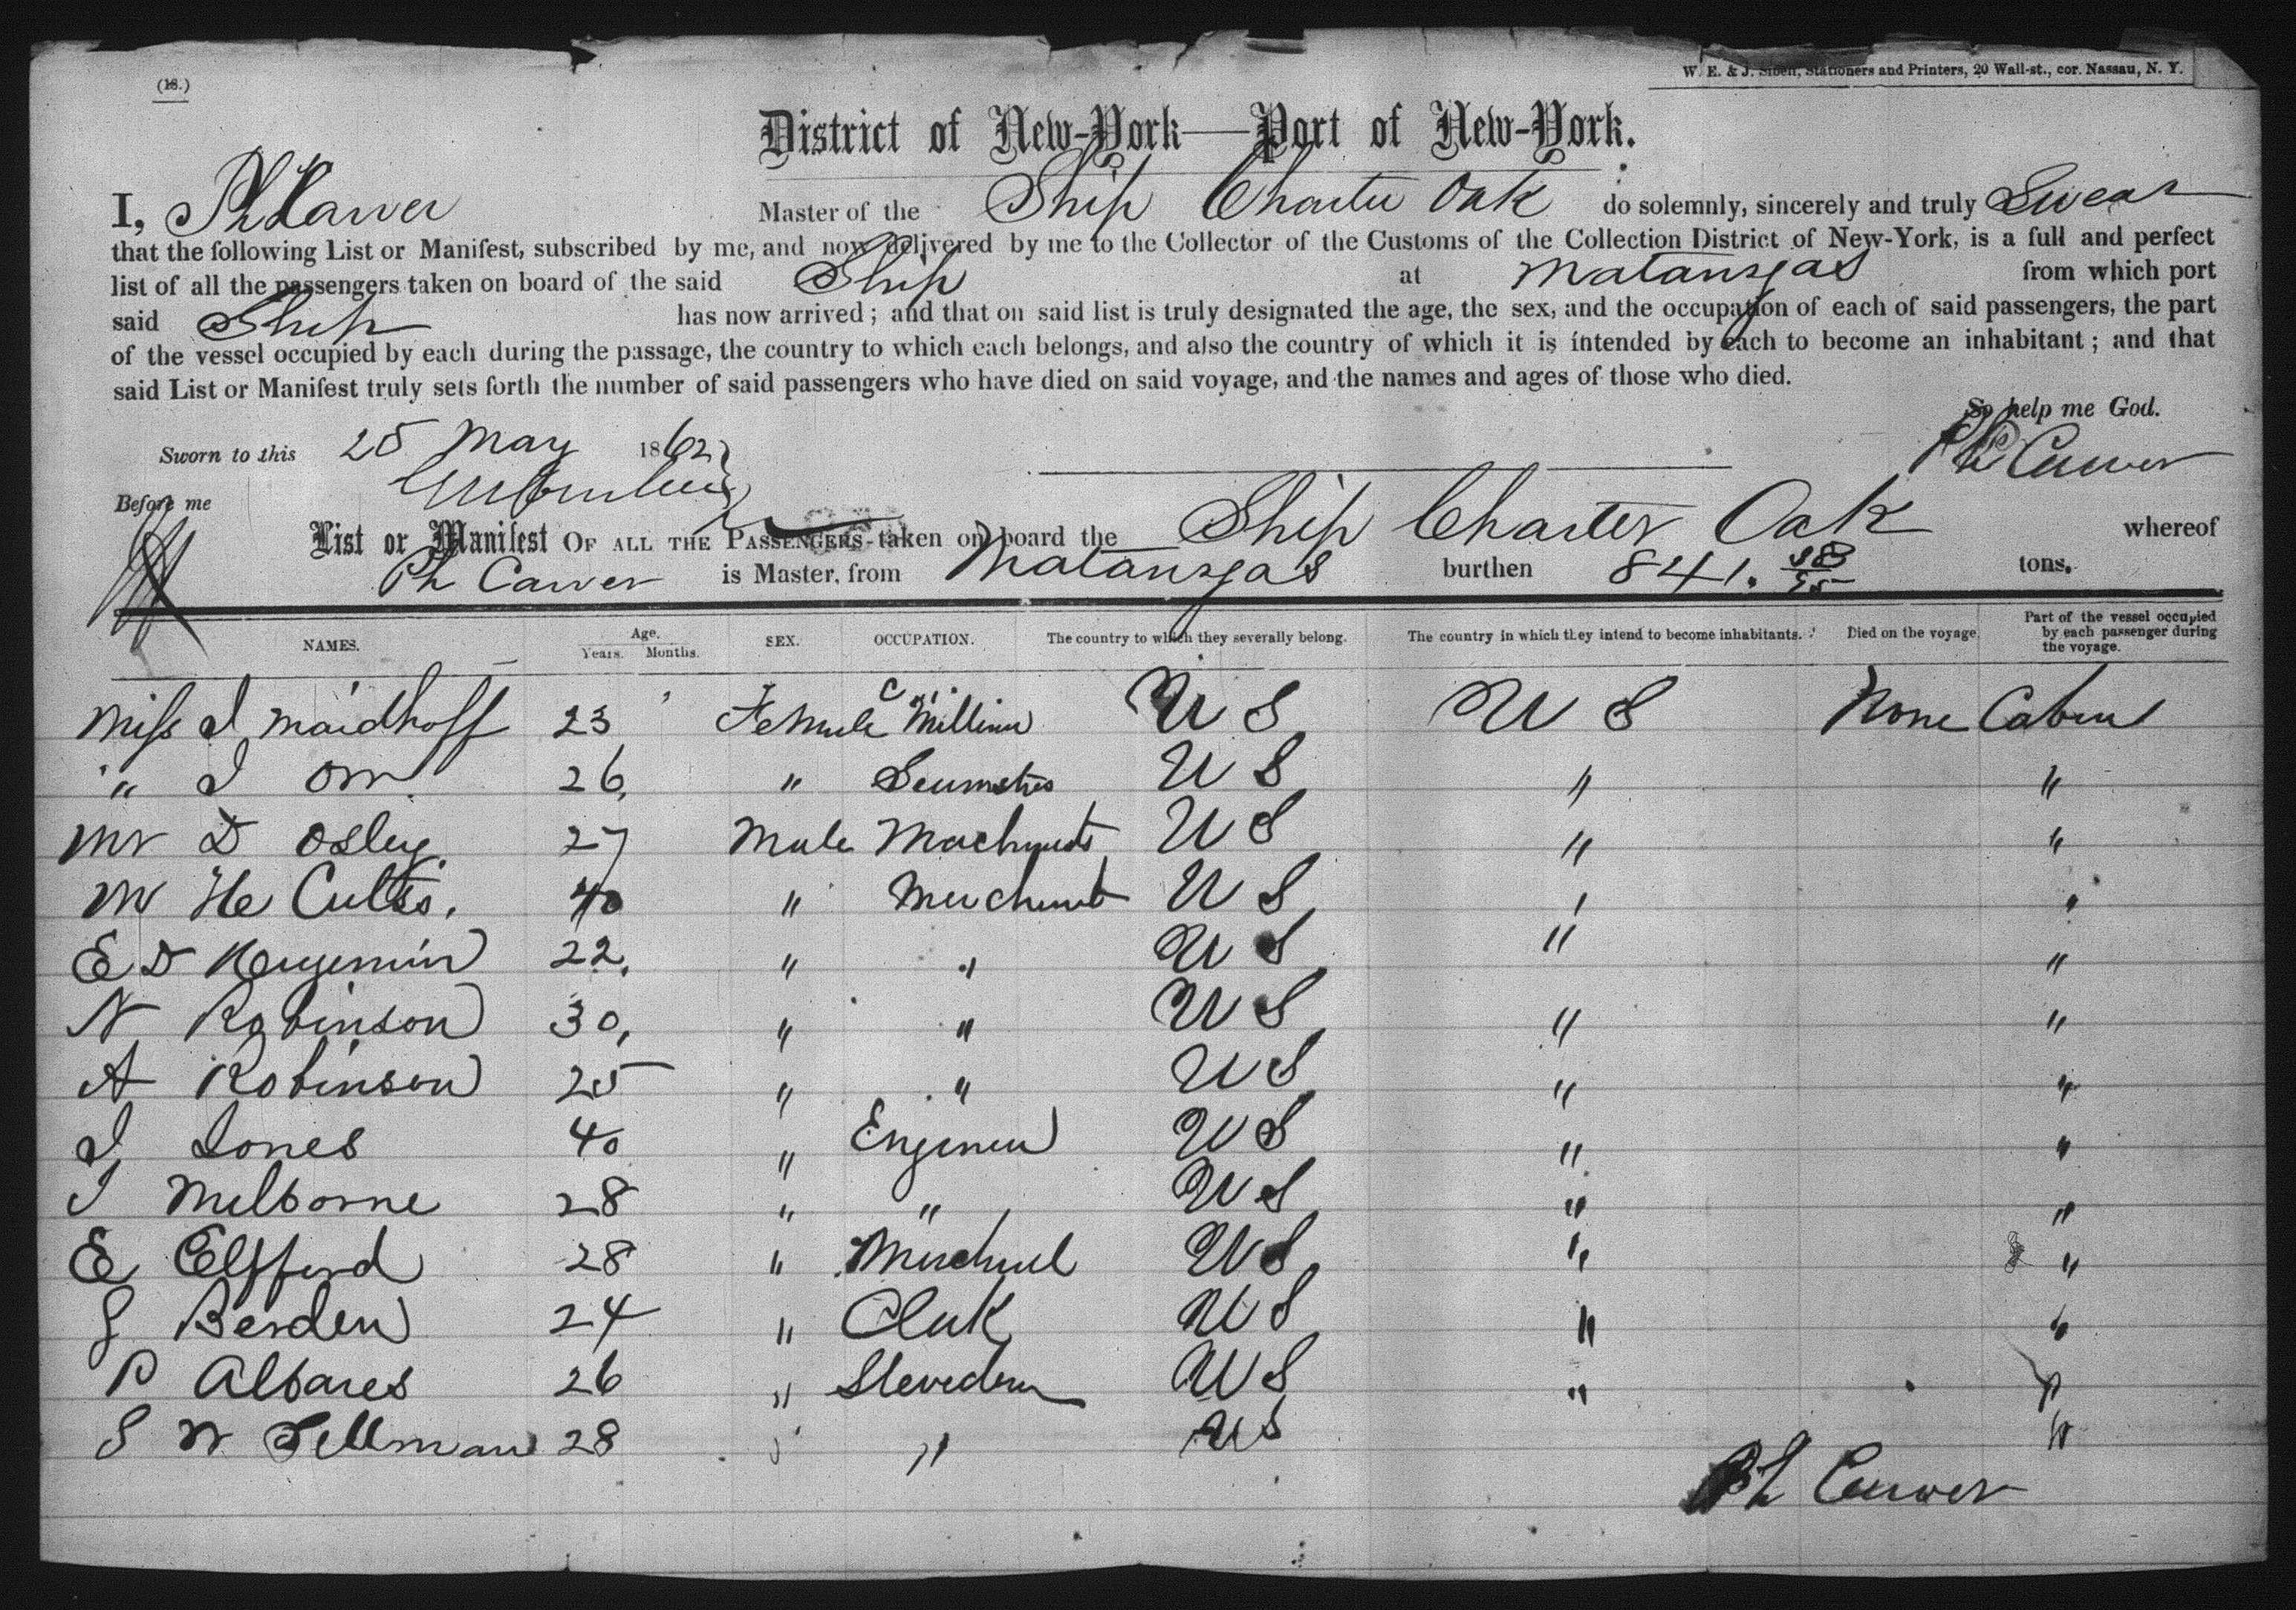 (18.)
W. E. & J. Sibell, Stationers and Printers, 20 Wall-st., cor. Nassau, N. Y.
District of New-York—Port of New-York.
I, Ph Carver Master of the Ship Charter Oak do solemnly, sincerely and truly Swear
that the following List or Manifest, subscribed by me, and now delivered by me to the Collector of the Customs of the Collection District of New-York, is a full and perfect
list of all the passengers taken on board of the said Ship at Matanzas from which port
said Ship has now arrived; and that on said list is truly designated the age, the sex, and the occupation of each of said passengers, the part
of the vessel occupied by each during the passage, the country to which each belongs, and also the country of which it is intended by each to become an inhabitant; and that
said List or Manifest truly sets forth the number of said passengers who have died on said voyage, and the names and ages of those who died.
So help me God.
Sworn to this 25 May 1862 Ph Carver
Before me
List or Manifest OF ALL THE PASSENGERS taken on board the Ship Charter Oak whereof
Ph Carver is Master, from Matanzas burthen 841. 38/95 tons.
NAMES. Age. Years. Months. SEX. OCCUPATION. The country to which they severally belong. The country in which they intend to become inhabitants. Died on the voyage. Part of the vessel occupied by each passenger during the voyage.
Miss J Maidhoff 23 Female Milliner U S U S None Cabin
" J Orr 26 " Seumstres U S " "
Mr D Osley 27 Male Machinists U S " "
Mr He Cutts 40 " Merchant U S " "
E D Benjemin 22 " " U S " "
N Robinson 30 " " U S " "
A Robinson 25 " " U S " "
J Jones 40 " Engineer U S " "
J Melborne 28 " " U S " "
E Elfford 28 " Merchant U S " "
G Berden 24 " Clerk U S " "
P Albares 26 " Stevedore U S " "
S W Sellman 28 " " U S "
Ph Carver